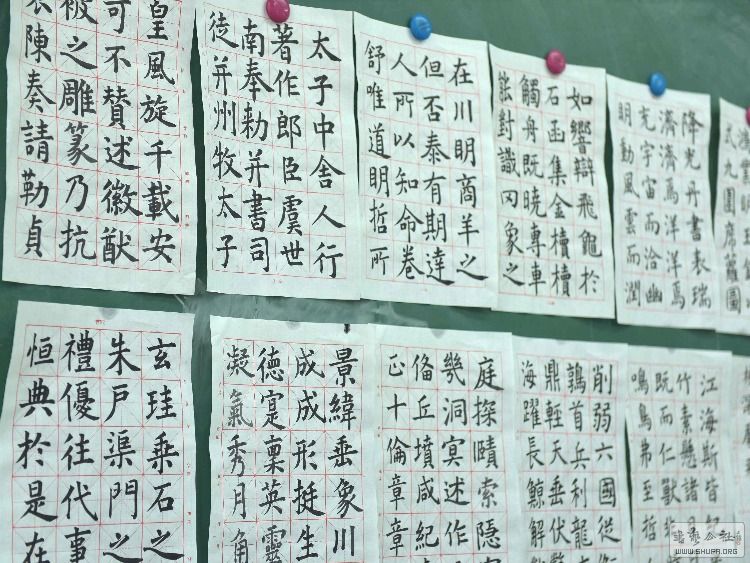 皇風旋千載安
可不贊述徽猷
被之雕篆乃抗
陳奏請勒貞
太子中舍人行
著作郎臣虞世
南奉勅并書司
徒并州牧太子
在川明商羊之
但否泰有期達
人所以知命卷
舒唯道明哲所
如響辯飛龜於
石函集金櫝櫝
觸舟既曉專車
能對識罔象之
降光丹書表瑞
濟濟焉洋洋焉
充宇宙而洽幽
明動風雲而潤
式九圍席蘿圖
玄珪乘石之
朱戶渠門之
禮優往代事
恒典於是在
景緯垂象川
成成形挺生
德寔稟英靈
凝氣秀月角
庭探賾索隱
幾洞冥述作
俻丘墳咸紀
正十倫章章
削弱六國從
鶉首兵利龍
鼎輕天垂伏
海躍長鯨解
江海斯皆
竹素懸諸
既而仁獸非
鳴鳥弗至哲
WWW.SHUFA.ORG